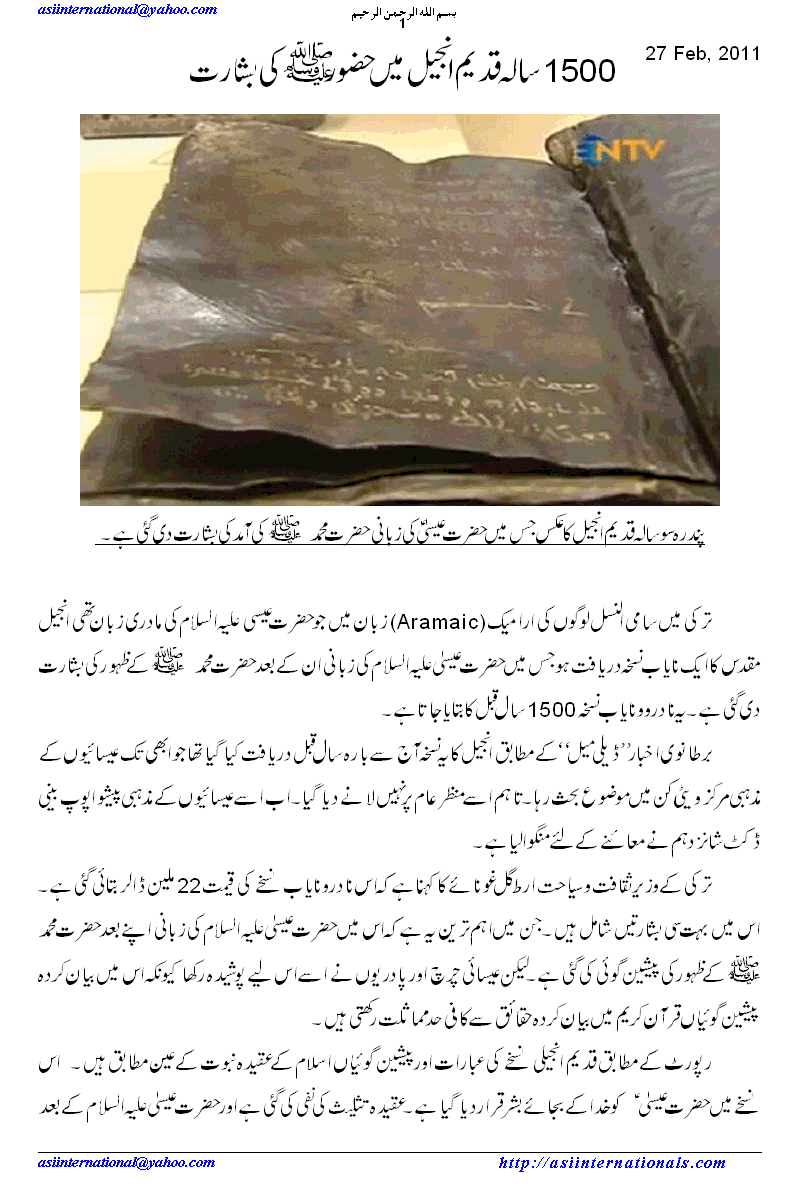 asiinternational@yahoo.com
بسم الله الرحمن الرحيم
1
27 Feb, 2011
1500 سالہ قدیم انجیل میں حضور ﷺ کی بشارت
NTV
پندرہ سو سالہ قدیم انجیل کا عکس جس میں حضرت عیسیٰؑ کی زبانی حضرت محمد ﷺ کی آمد کی بشارت دی گئی ہے۔
ترکی میں سامی النسل لوگوں کی ارامیک (Aramaic) زبان میں جو حضرت عیسی علیہ السلام کی مادری زبان تھی انجیل
مقدس کا ایک نایاب نسخہ دریافت ہو جس میں حضرت عیسیٰ علیہ السلام کی زبانی ان کے بعد حضرت محمد ﷺ کے ظہور کی بشارت
دی گئی ہے۔ یہ نادر و نایاب نسخہ 1500 سال قبل کا بتایا جاتا ہے۔
برطانوی اخبار ’’ڈیلی میل‘‘ کے مطابق انجیل کا یہ نسخہ آج سے بارہ سال قبل دریافت کیا گیا تھا جو ابھی تک عیسائیوں کے
مذہبی مرکز ویٹی کن میں موضوع بحث رہا۔ تاہم اسے منظر عام پر نہیں لانے دیا گیا۔ اب اسے عیسائیوں کے مذہبی پیشوا پوپ بینی
ڈکٹ شانزدہم نے معائنے کے لئے منگوالیا ہے۔
ترکی کے وزیر ثقافت و سیاحت ارطگل غونائے کا کہنا ہے کہ اس نادر و نایاب نسخے کی قیمت 22 ملین ڈالر بتائی گئی ہے۔
اس میں بہت سی بشارتیں شامل ہیں۔ جن میں اہم ترین یہ ہے کہ اس میں حضرت عیسیٰ علیہ السلام کی زبانی اپنے بعد حضرت محمد
ﷺ کے ظہور کی پیشین گوئی کی گئی ہے۔ لیکن عیسائی چرچ اور پادریوں نے اسے اس لیے پوشیدہ رکھا کیونکہ اس میں بیان کردہ
پیشین گوئیاں قرآن کریم میں بیان کردہ حقائق سے کافی حد مماثلت رکھتی ہیں۔
رپورٹ کے مطابق قدیم انجیلی نسخے کی عبارات اور پیشین گوئیاں اسلام کے عقیدہ نبوت کے عین مطابق ہیں۔ اس
نسخے میں حضرت عیسیٰؑ کو خدا کے بجائے بشر قرار دیا گیا ہے۔ عقیدہ تثلیث کی نفی کی گئی ہے اور حضرت عیسیٰ علیہ السلام کے بعد
asiinternational@yahoo.com
http://asiinternationals.com